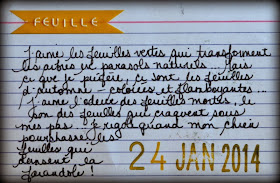 FEUILLE
J'aime les feuilles vertes qui transforment
les arbres en parasols naturels... Mais
ce que je préfère, ce sont les feuilles
d'automne - colorées et flamboyantes...
J'aime l'odeur des feuilles mortes, le
son des feuilles qui craquent sous
mes pas... Je rigole quand mon chien
pourchasse les
feuilles qui
dansent la
farandole !
24 JAN 2014